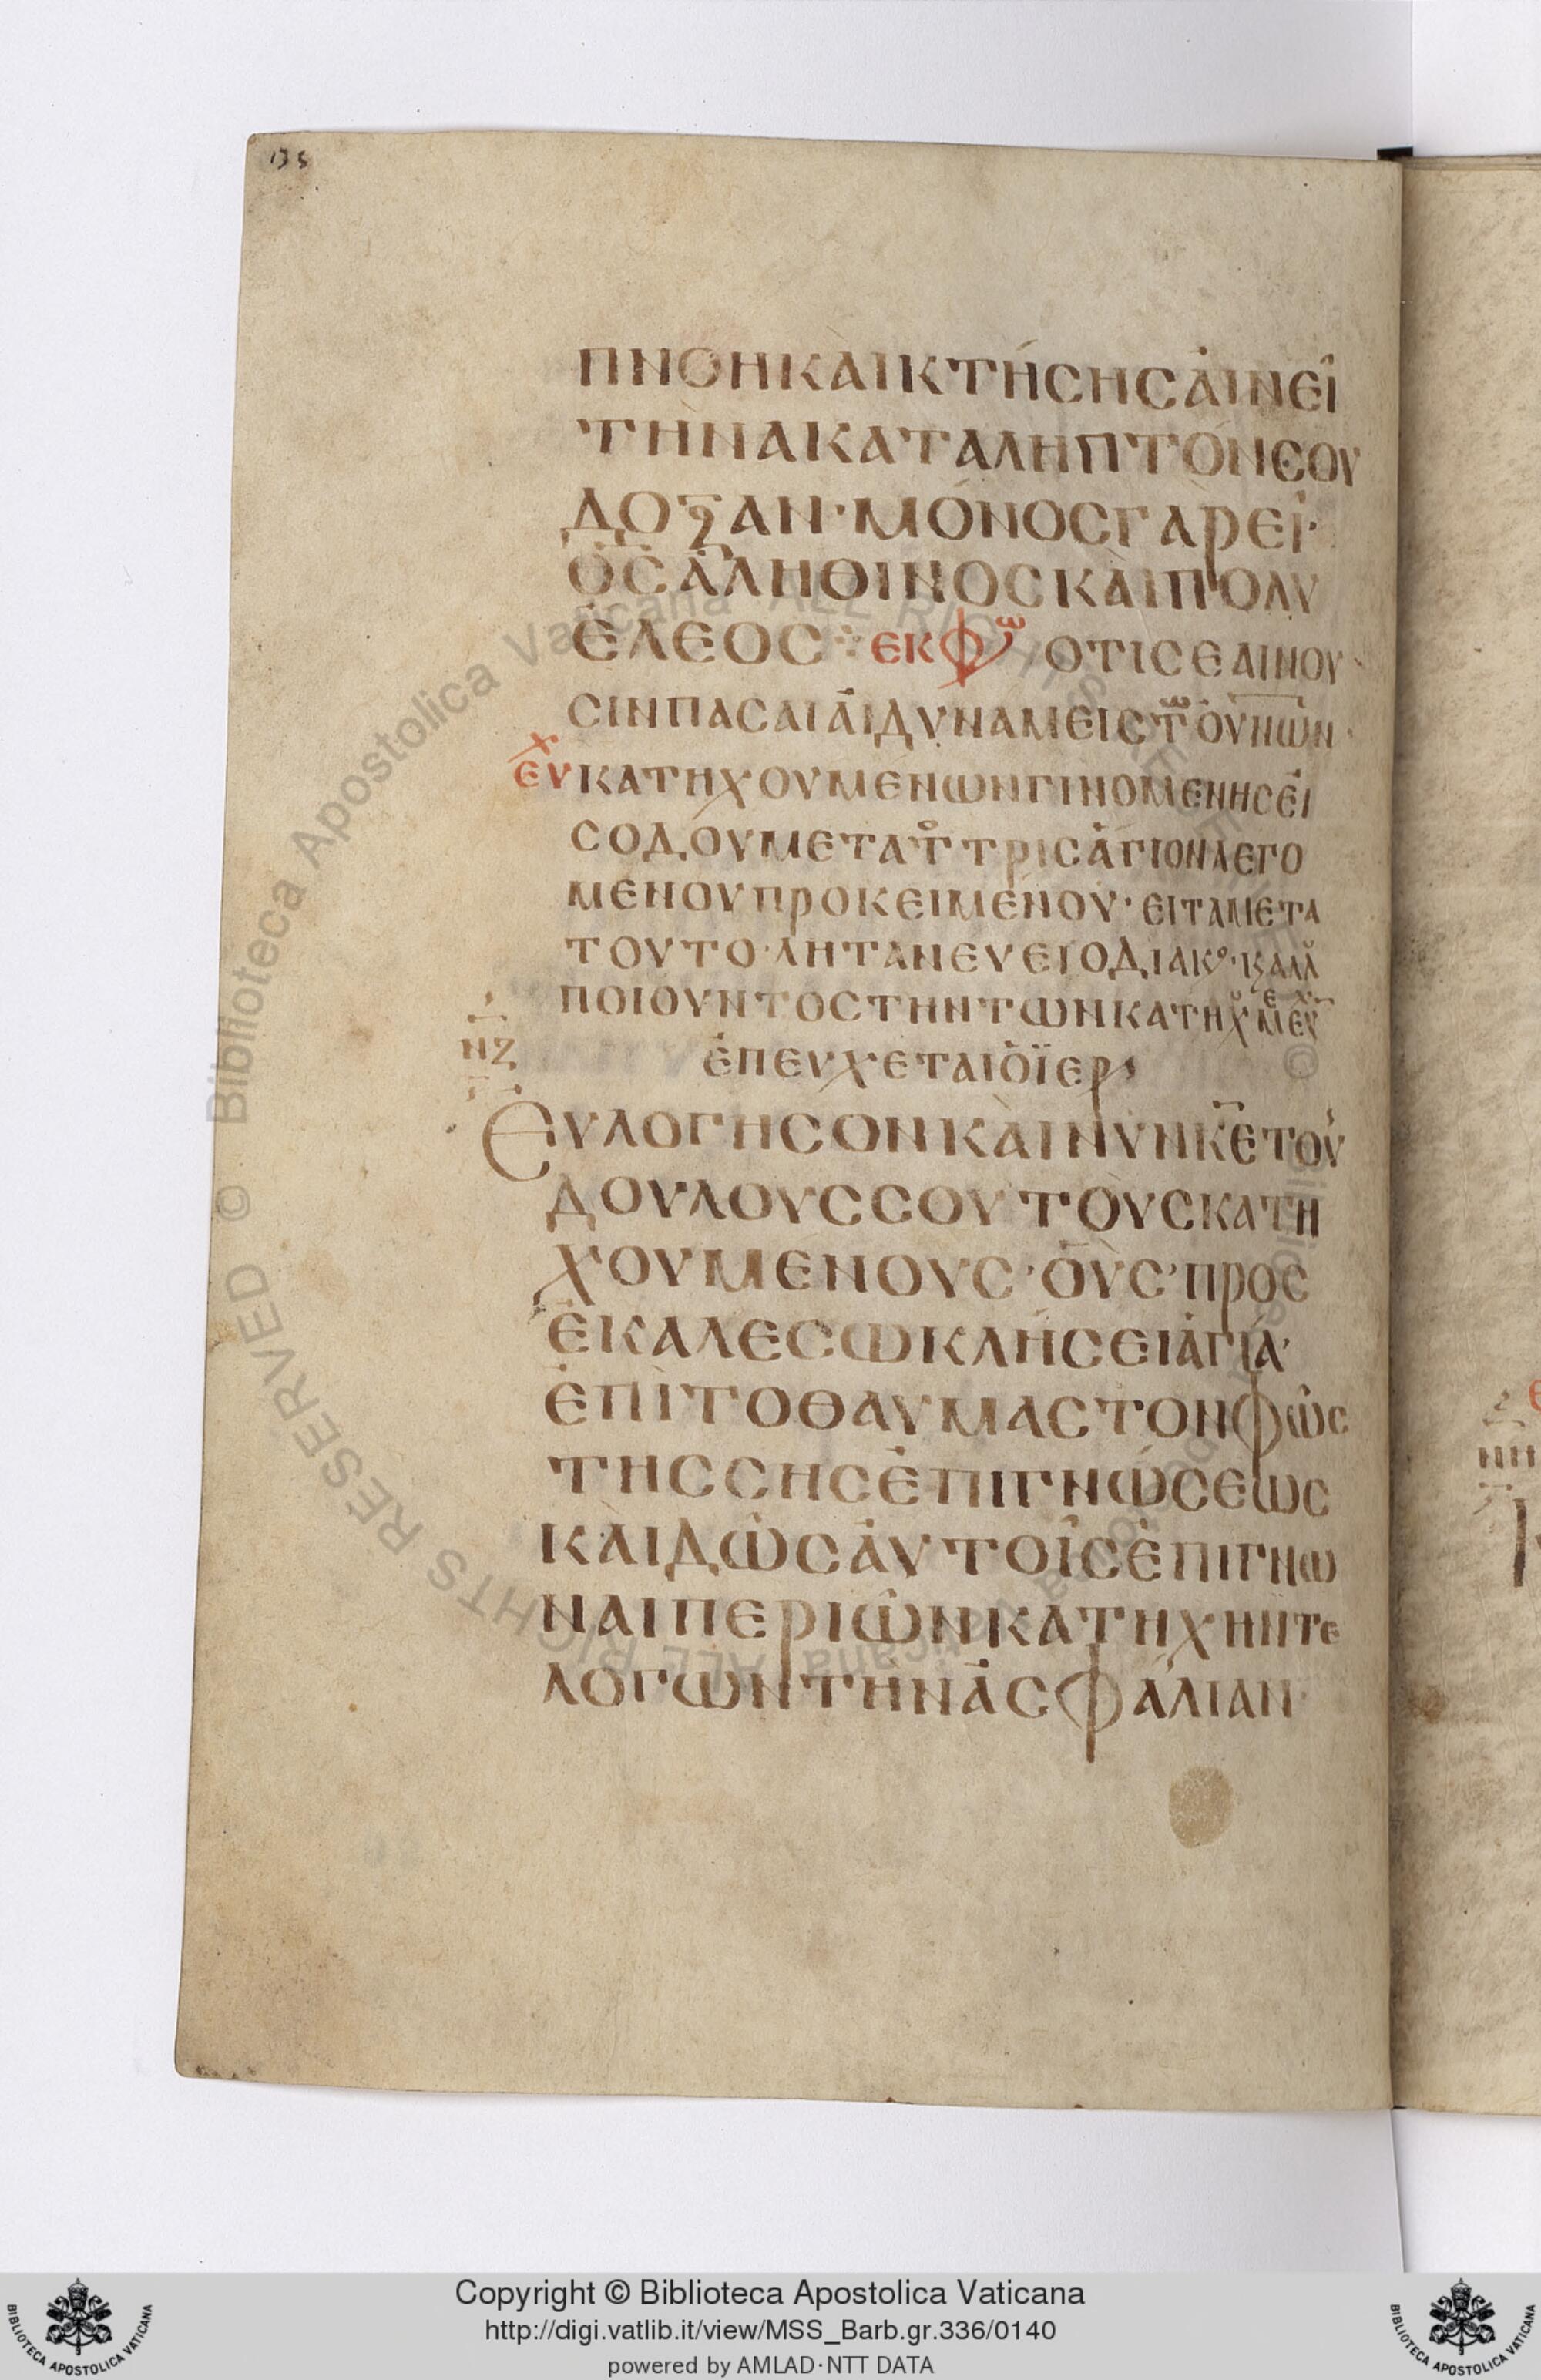 135
ΠΝΟΗ ΚΑΙ ΚΤΗΣΗΣ ΑΙΝΕΙ
ΤΗΝ ΑΚΑΤΑΛΗΠΤΟΝ ΣΟΥ
ΔΟΞΑΝ· ΜΟΝΟΣ ΓΑΡ ΕΙ·
ΘΣ ΑΛΗΘΙΝΟΣ ΚΑΙ ΠΟΛΥ
ΕΛΕΟΣ ⁘ ΕΚΦΩ ΟΤΙ ΣΕ ΑΙΝΟΥ
ΣΙΝ ΠΑΣΑΙ ΑΙ ΔΥΝΑΜΕΙΣ ΤΩ ΟΥΝΩΝ·
ΕΥΧ ΚΑΤΗΧΟΥΜΕΝΩΝ ΓΙΝΟΜΕΝΗΣ ΕΙ
ΣΟΔΟΥ ΜΕΤΑ ΤΟ ΤΡΙΣΑΓΙΟΝ ΛΕΓΟ
ΜΕΝΟΥ ΠΡΟΚΕΙΜΕΝΟΥ· ΕΙΤΑ ΜΕΤΑ
ΤΟΥΤΟ· ΛΗΤΑΝΕΥΕΙ Ο ΔΙΑΚΟ·
ΠΟΙΟΥΝΤΟΣ ΤΗΝ ΤΩΝ ΚΑΤΗΧΟΥΜΕ ΕΥΧ
ΝΖ ΕΠΕΥΧΕΤΑΙ Ο ΪΕΡ
ΕΥΛΟΓΗΣΟΝ ΚΑΙ ΝΥΝ ΚΕ ΤΟΥ
ΔΟΥΛΟΥΣ ΣΟΥ ΤΟΥΣ ΚΑΤΗ
ΧΟΥΜΕΝΟΥΣ· ΟΥΣ· ΠΡΟΣ
ΕΚΑΛΕΣΩ ΚΛΗΣΕΙ ΑΓΙΑ·
ΕΠΙ ΤΟ ΘΑΥΜΑΣΤΟΝ ΦΩΣ
ΤΗΣ ΣΗΣ ΕΠΙΓΝΩΣΕΩΣ
ΚΑΙ ΔΩΣ ΑΥΤΟΙΣ ΕΠΙΓΝΩ
ΝΑΙ ΠΕΡΙ ΩΝ ΚΑΤΗΧΗΝΤΕ
ΛΟΓΩΝ ΤΗΝ ΑΣΦΑΛΙΑΝ·
Copyright © Biblioteca Apostolica Vaticana
http://digi.vatlib.it/view/MSS_Barb.gr.336/0140
powered by AMLAD·NTT DATA